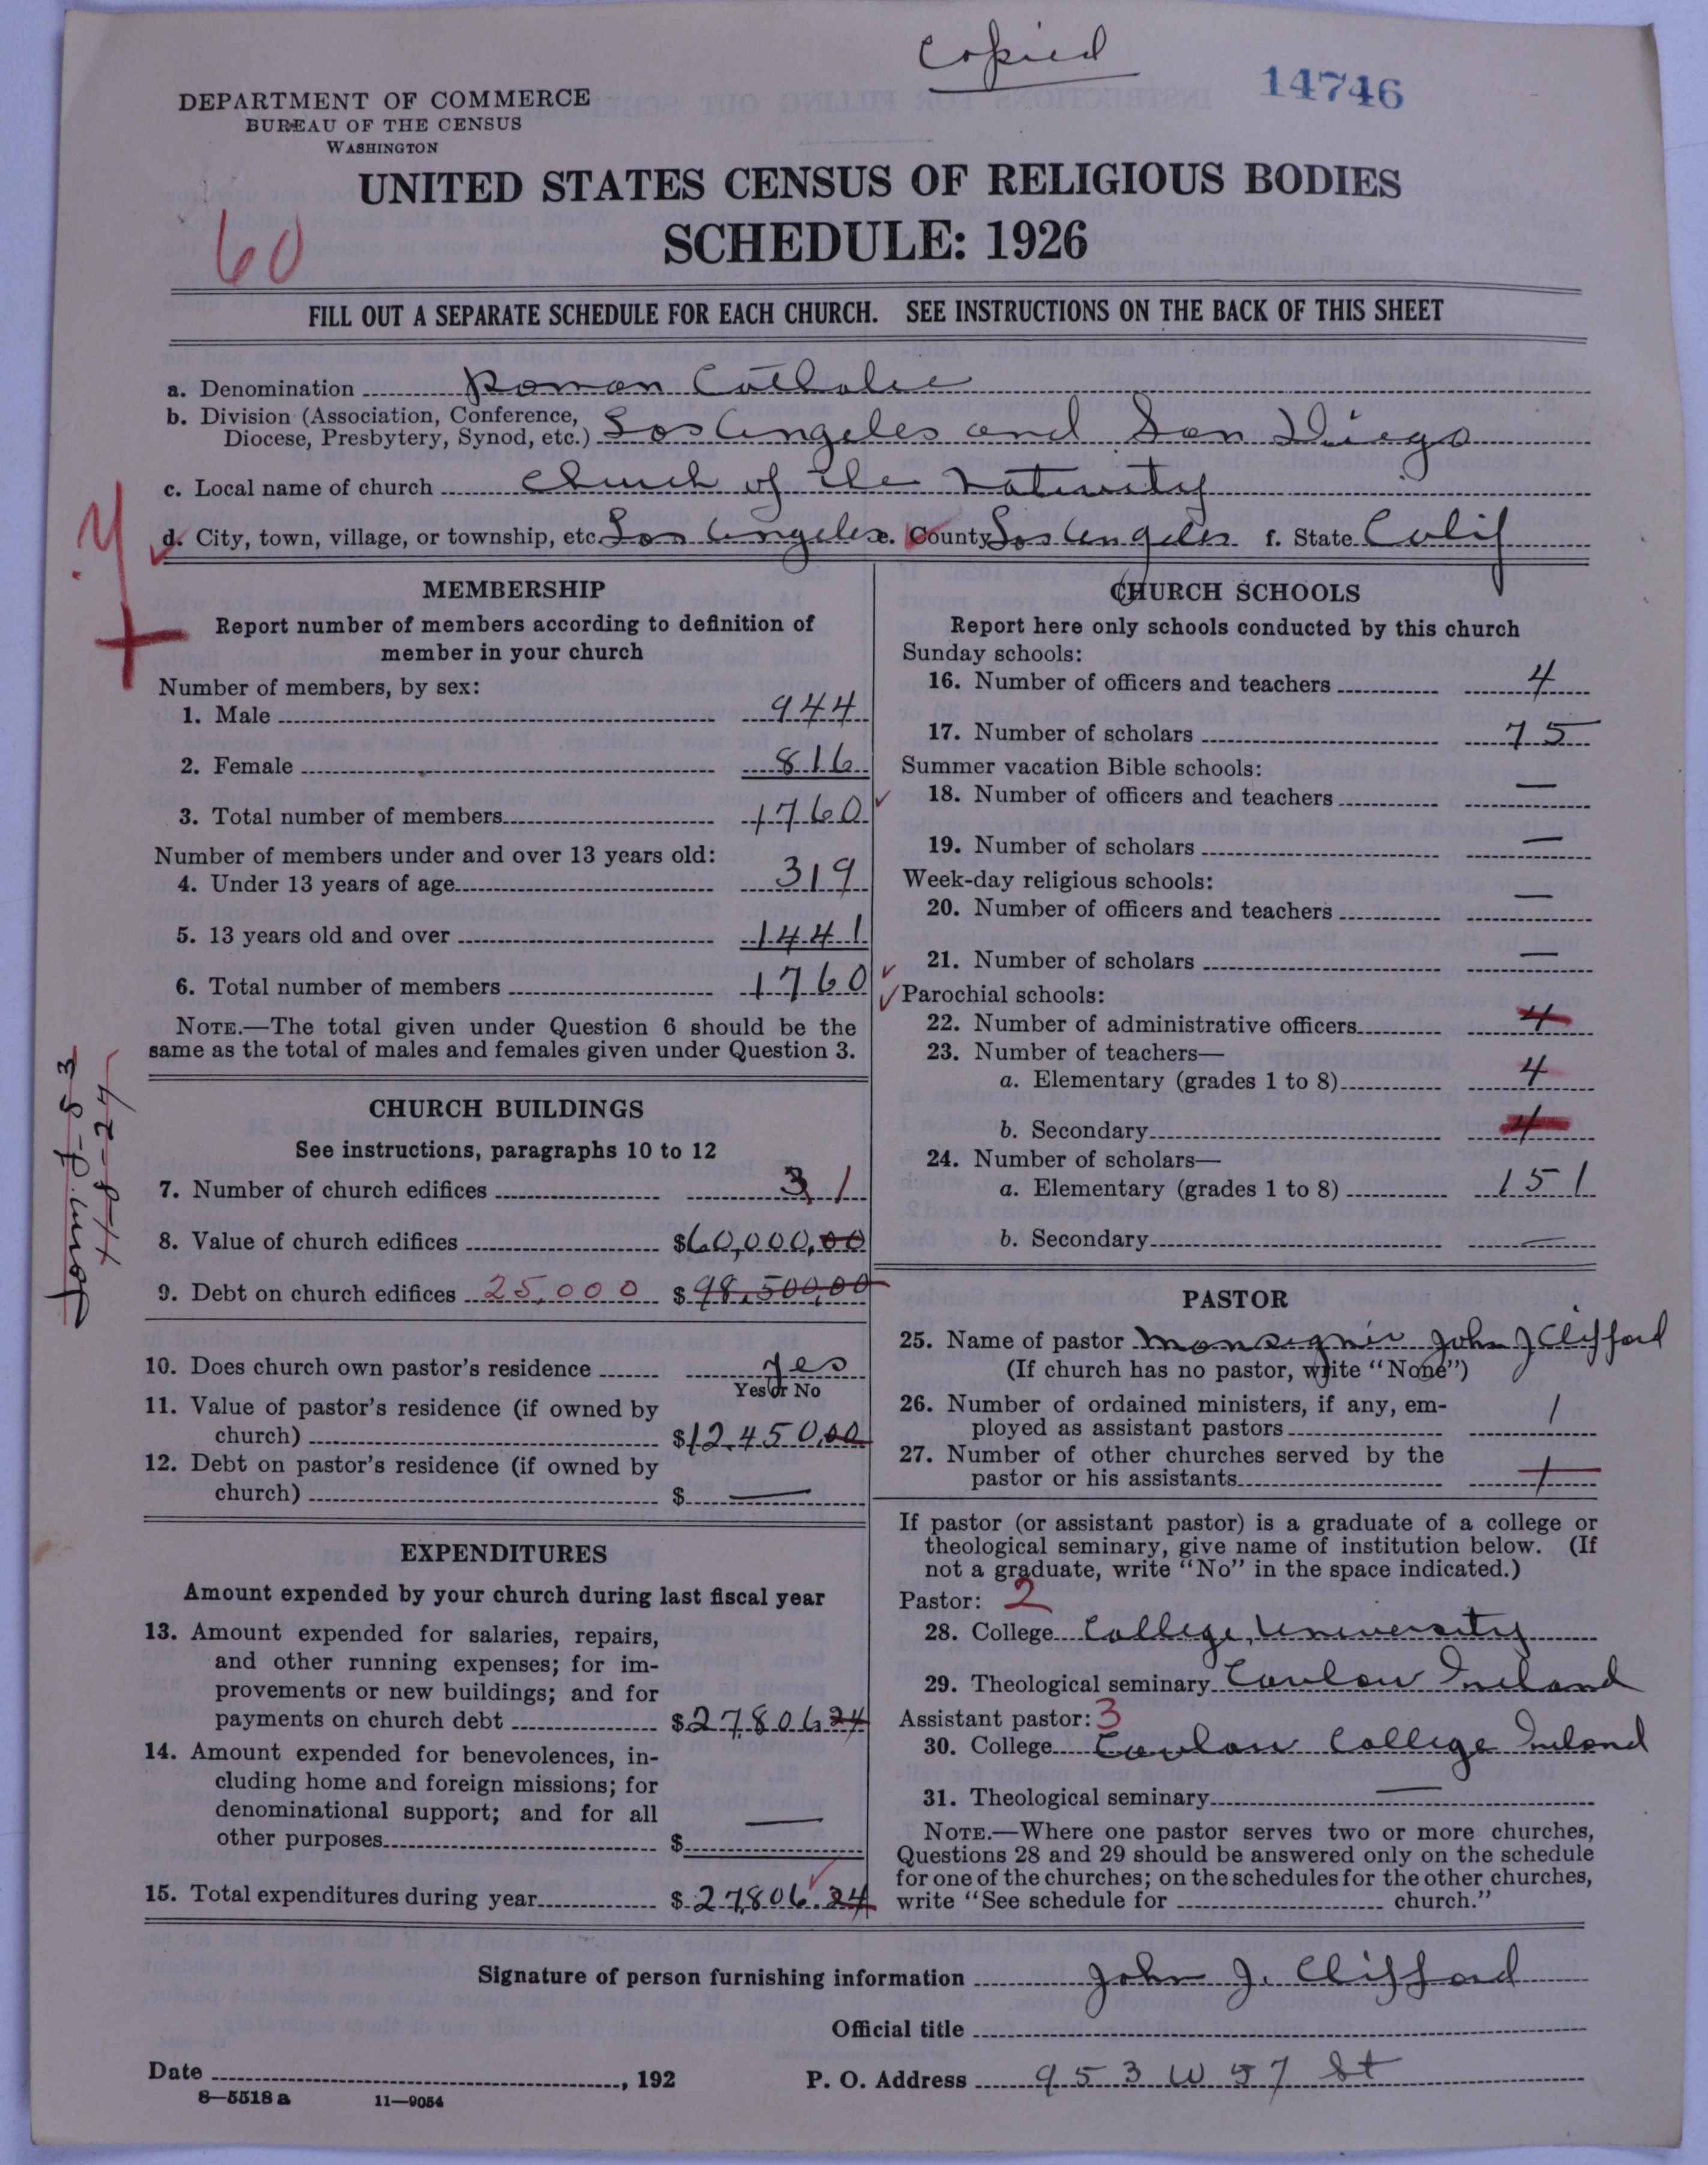 Copied
14746
DEPARTMENT OF COMMERCE
BUREAU OF THE CENSUS
WASHINGTON
UNITED STATES CENSUS OF RELIGIOUS BODIES
SCHEDULE: 1926
60
FILL OUT A SEPARATE SCHEDULE FOR EACH CHURCH. SEE INSTRUCTIONS ON THE BACK OF THIS SHEET
a. Denomination Roman Catholic
b. Division (Association, Conference,
Diocese, Presbytery, Synod, etc.) Los Angeles and San Diego
c. Local name of church Church of the Nativity
d. City, town, village, or township, etc. Los Angeles e. County Los Angeles f. State Calif
MEMBERSHIP
Report number of members according to definition of
member in your church
Number of members, by sex:
1. Male 944
2. Female 816
3. Total number of members 1760
Number of members under and over 13 years old:
4. Under 13 years of age 319
5. 13 years old and over 1441
6. Total number of members 1760
NOTE.—The total given under Question 6 should be the
same as the total of males and females given under Question 3.
CHURCH BUILDINGS
See instructions, paragraphs 10 to 12
7. Number of church edifices 3 1
8. Value of church edifices $60,000,00
9. Debt on church edifices 25,000 $98,500,00
10. Does church own pastor's residence yes
Yes or No
11. Value of pastor's residence (if owned by
church) $12,450,00
12. Debt on pastor's residence (if owned by
church) $ —
EXPENDITURES
Amount expended by your church during last fiscal year
13. Amount expended for salaries, repairs,
and other running expenses; for im-
provements or new buildings; and for
payments on church debt $27,806.24
14. Amount expended for benevolences, in-
cluding home and foreign missions; for
denominational support; and for all
other purposes $ —
15. Total expenditures during year $27,806.24
CHURCH SCHOOLS
Report here only schools conducted by this church
Sunday schools:
16. Number of officers and teachers 4
17. Number of scholars 75
Summer vacation Bible schools:
18. Number of officers and teachers —
19. Number of scholars —
Week-day religious schools:
20. Number of officers and teachers —
21. Number of scholars —
Parochial schools:
22. Number of administrative officers 4
23. Number of teachers—
a. Elementary (grades 1 to 8) 4
b. Secondary 4
24. Number of scholars—
a. Elementary (grades 1 to 8) 151
b. Secondary —
PASTOR
25. Name of pastor Monsegnir John J Clifford
(If church has no pastor, write "None")
26. Number of ordained ministers, if any, em-
ployed as assistant pastors 1
27. Number of other churches served by the
pastor or his assistants 1
If pastor (or assistant pastor) is a graduate of a college or
theological seminary, give name of institution below. (If
not a graduate, write "No" in the space indicated.)
Pastor: 2
28. College College, University
29. Theological seminary Carlow Ireland
Assistant pastor: 3
30. College Carlow College Ireland
31. Theological seminary —
NOTE.—Where one pastor serves two or more churches,
Questions 28 and 29 should be answered only on the schedule
for one of the churches; on the schedules for the other churches,
write "See schedule for church."
Signature of person furnishing information John J. Clifford
Official title
Date , 192
P. O. Address 953 W 57 St
8—5518 a 11—9054